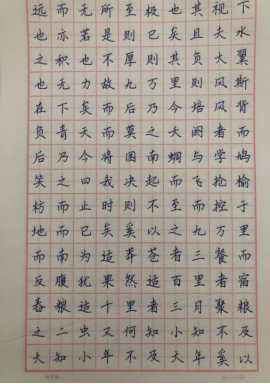 远而无所至极也其视下
也亦若是则已矣且夫水
之积也不厚则其负大翼
也无力故九万里则风斯
在下矣而后乃今培风背
负青天而莫之夭阏者而
后乃今将图南蜩与学鸠
笑之曰我决起而飞抢榆
枋而止时则不至而控于
地而已矣奚以之九万里
而南为适莽苍者三餐而
反腹犹果然适百里者宿
舂粮适千里者三月聚粮
之二虫又何知小知不及
大知小年不及大年奚以